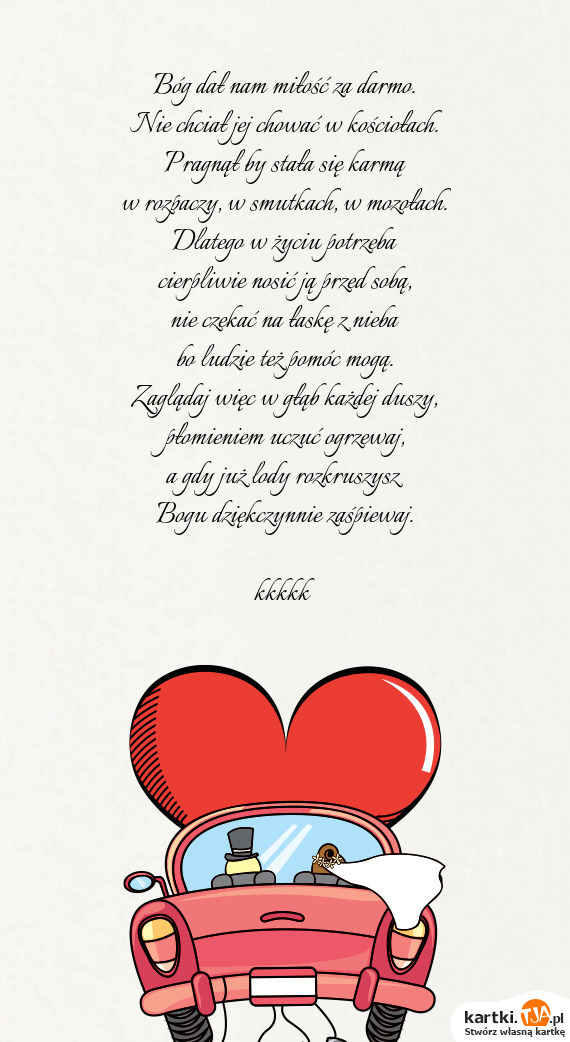 Bóg dał nam miłość za darmo.
Nie chciał jej chować w kościołach.
Pragnął by stała się karmą
w rozpaczy, w smutkach, w mozołach.
Dlatego w życiu potrzeba
cierpliwie nosić ją przed sobą,
nie czekać na łaskę z nieba
bo ludzie też pomóc mogą.
Zaglądaj więc w głąb każdej duszy,
płomieniem uczuć ogrzewaj,
a gdy już lody rozkruszysz
Bogu dziękczynnie zaśpiewaj.
kkkkk
kartki.TJA.pl
Stwórz własną kartkę